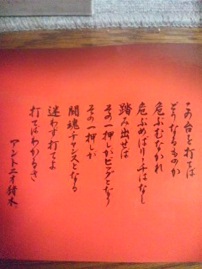 この台を打てば
どうなるものか
危ぶむなかれ
危ぶめばリーチはなし
踏み出せば
その一押しがビッグとなり
その一押しが
闘魂チャンスとなる
迷わず打てよ
打てばわかるさ
アントニオ猪木